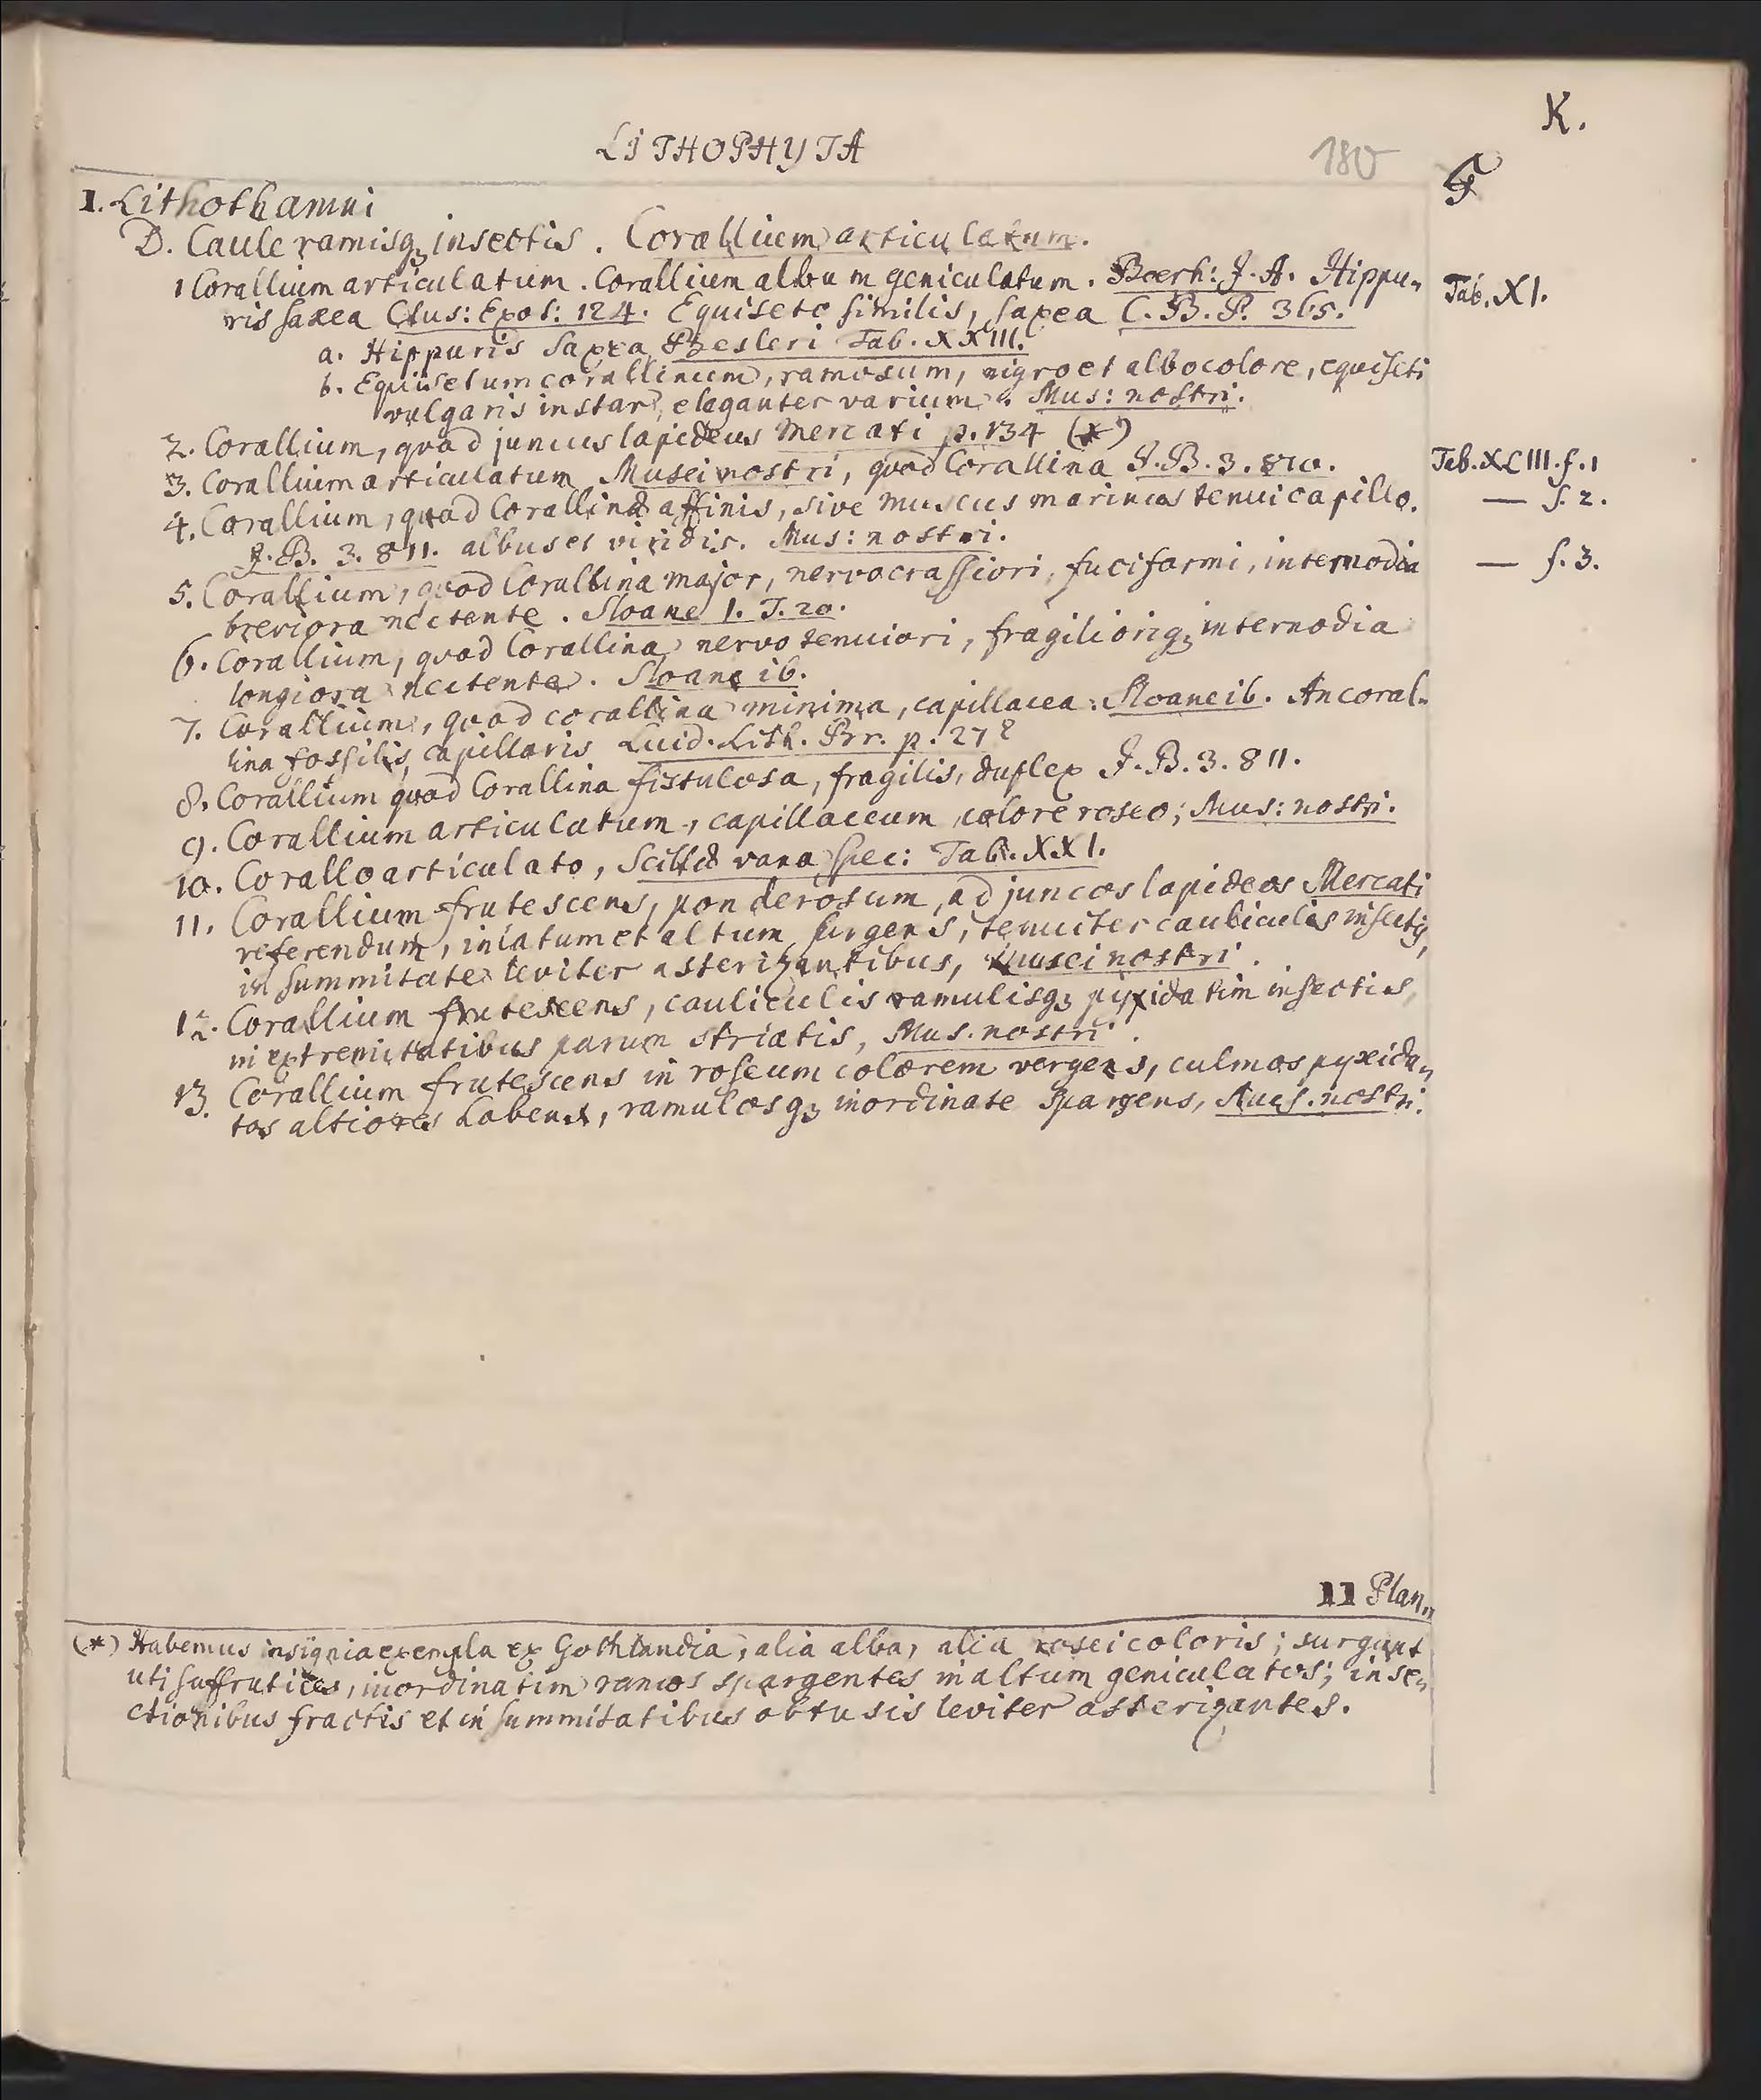 K.
LITHOPHYTA
180
I. Lithothamni
D. Caule ramisq; insectis. Corallium articulatum.
1 Corallium articulatum. Corallium album geniculatum. Boerh: J. A. Hippu„
Tab. XI.
ris saxea Clus: Exot: 124. Equiseto similis, saxea C. B. P. 365.
a. Hippuris Saxea Besleri Tab. XXIII.
b. Equisetum corallinum, ramosum, nigro et albo colore, equiseti
vulgaris instar, eleganter varium. Mus: nostri.
2. Corallium, quod juncus lapideus Mercati p. 134 (*)
3. Corallium articulatum Musei nostri, quod Corallina J. B. 3. 810.
Tab. XCIII. f. 1
4. Corallium, quod Corallinæ affinis, sive muscus marinus tenui capillo.
— f. 2.
J. B. 3. 811. albus et viridis. Mus: nostri.
5. Corallium, quod Corallina major, nervo crassiori, fuciformi, internodia
— f. 3.
breviora nectente. Sloane 1. T. 20.
6. Corallium, quod Corallina nervo tenuiori, fragilioriq; internodia
longiora nectente. Sloane ib.
7. Corallium, quod corallina minima, capillacea: Sloane ib. An coral„
lina fossilis, capillaris Luid. Lith. Br. p. 27?
8. Corallium quod Corallina fistulosa, fragilis, duplex J. B. 3. 811.
9. Corallium articulatum, capillaceum colore roseo; Mus: nostri.
10. Corallo articulato, Scillæ vana spec: Tab. XXI.
11. Corallium frutescens, ponderosum, ad juncos lapideos Mercati
referendum, in latum et altum surgens, tenuiter cauliculis insectis,
in summitate leviter asterizantibus, Musei nostri.
12. Corallium frutescens, cauliculis ramulisq; pyxidatim insectis,
in extremitatibus parum striatis, Mus. nostri.
13. Corallium frutescens in roseum colorem vergens, culmos pyxida„
tos altiores habens, ramulosq; inordinate spargens, Mus. nostri.
II Plan„
(*) Habemus insignia exempla ex Gothlandia, alia alba, alia rosei coloris; surgunt
uti suffrutices, inordinatim ramos spargentes in altum geniculatos; in se„
ctionibus fractis et in summitatibus obtusis leviter asterizantes.